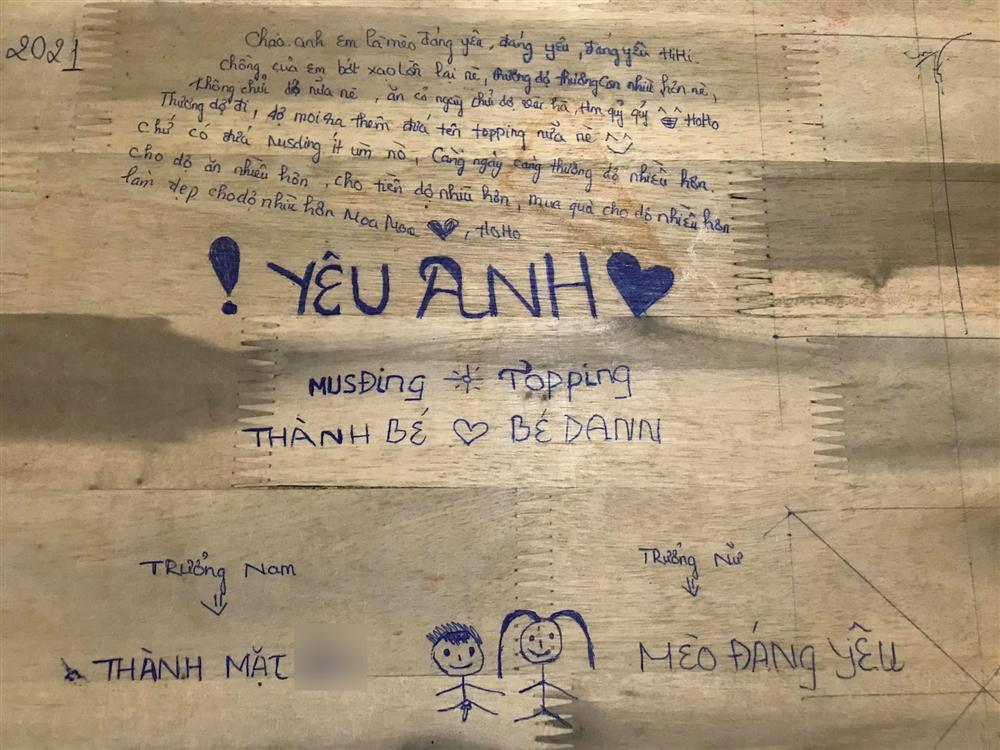 2021
Chào anh em là mèo đáng yêu, đáng yêu, đáng yêu HiHi.
chồng của em bớt xạo lồn lại nè, thương dợ thương con nhiều hơn nè,
không chửi dợ nữa nè, ăn cả ngày chửi dợ hà, Hm quỷ quỷ HoHo
Thương dợ đi, dợ moi ra thêm đứa tên topping nữa nè
chứ có đứa Musding ít ùm nò, Càng ngày càng thương dợ nhiều hơn.
cho dợ ăn nhiều hơn, cho tiền dợ nhiều hơn, mua quà cho dợ nhiều hơn
làm đẹp cho dợ nhiều hơn Moa Moa, HoHo
! YÊU ANH
MUSĐing Topping
THÀNH BÉ BÉ DANN
TRưởng Nam
TRưởng Nữ
THÀNH MẶT
MÈO ĐÁNG YÊU